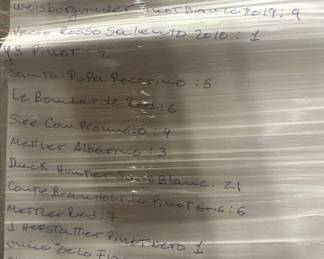 Weisburgunder Pinot Bianco 2019: 9
Verso Rosso Salento 2010: 1
Pinot: 2
Santa Pecorino: 5
Le Bombarde Red: 6
Sire Compromesso: 4
Mettler Albarino: 3
Duck Hunter Blanc: 21
Conte Brandolini Pinot Gris: 6
Mettler Red: 7
J. Hofstatter Pinot Nero 1